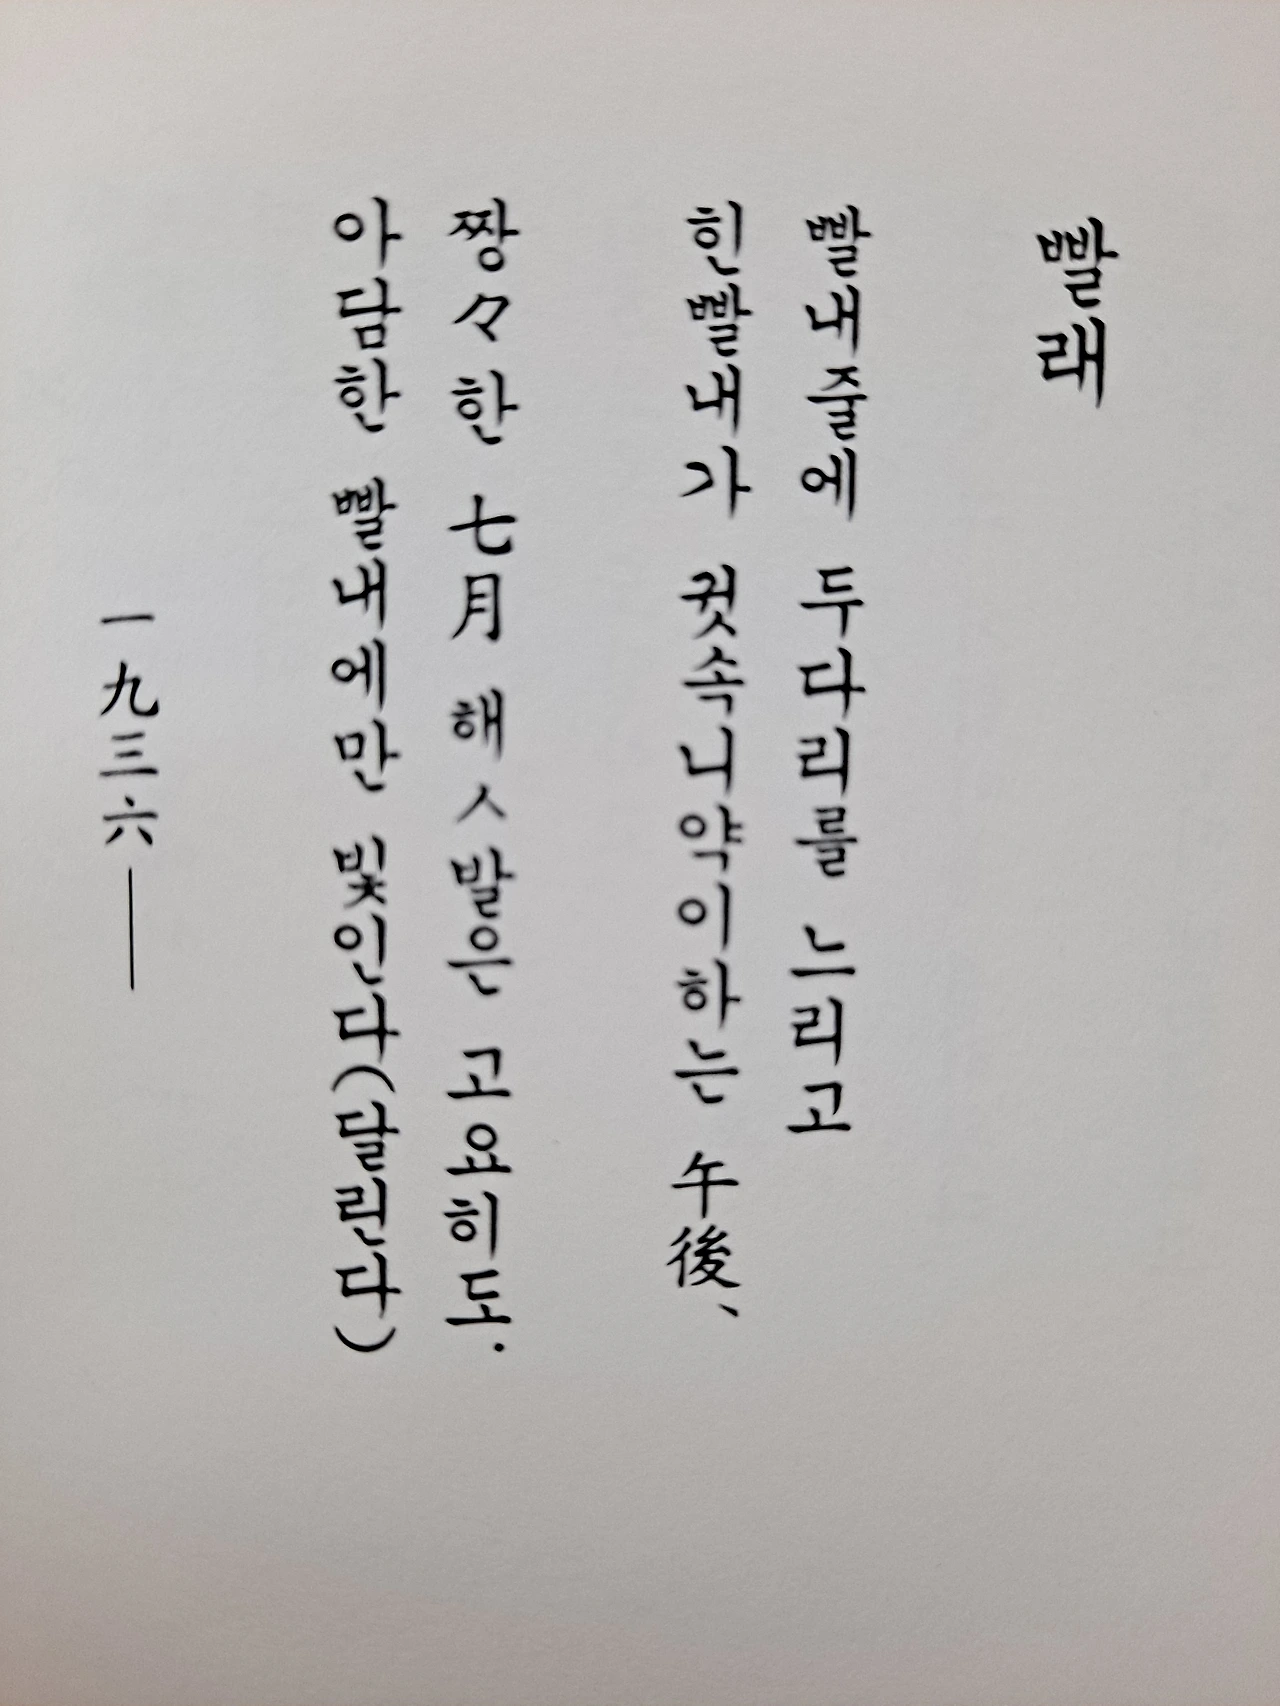 빨래
빨내줄에 두다리를 느리고
힌빨내가 귓속니약이하는 午後、
짱々한 七月 해ㅅ발은 고요히도.
아담한 빨내에만 빛인다(달린다)
一九三六——